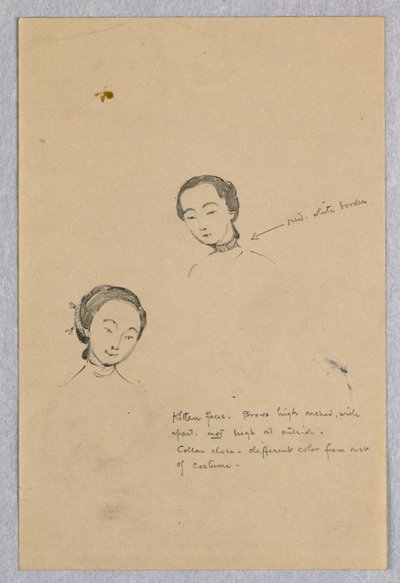 red. white border
Kitten faces. Brows high arched, wide
apart, not high at outside.
Collar close. different color from rest
of costume -